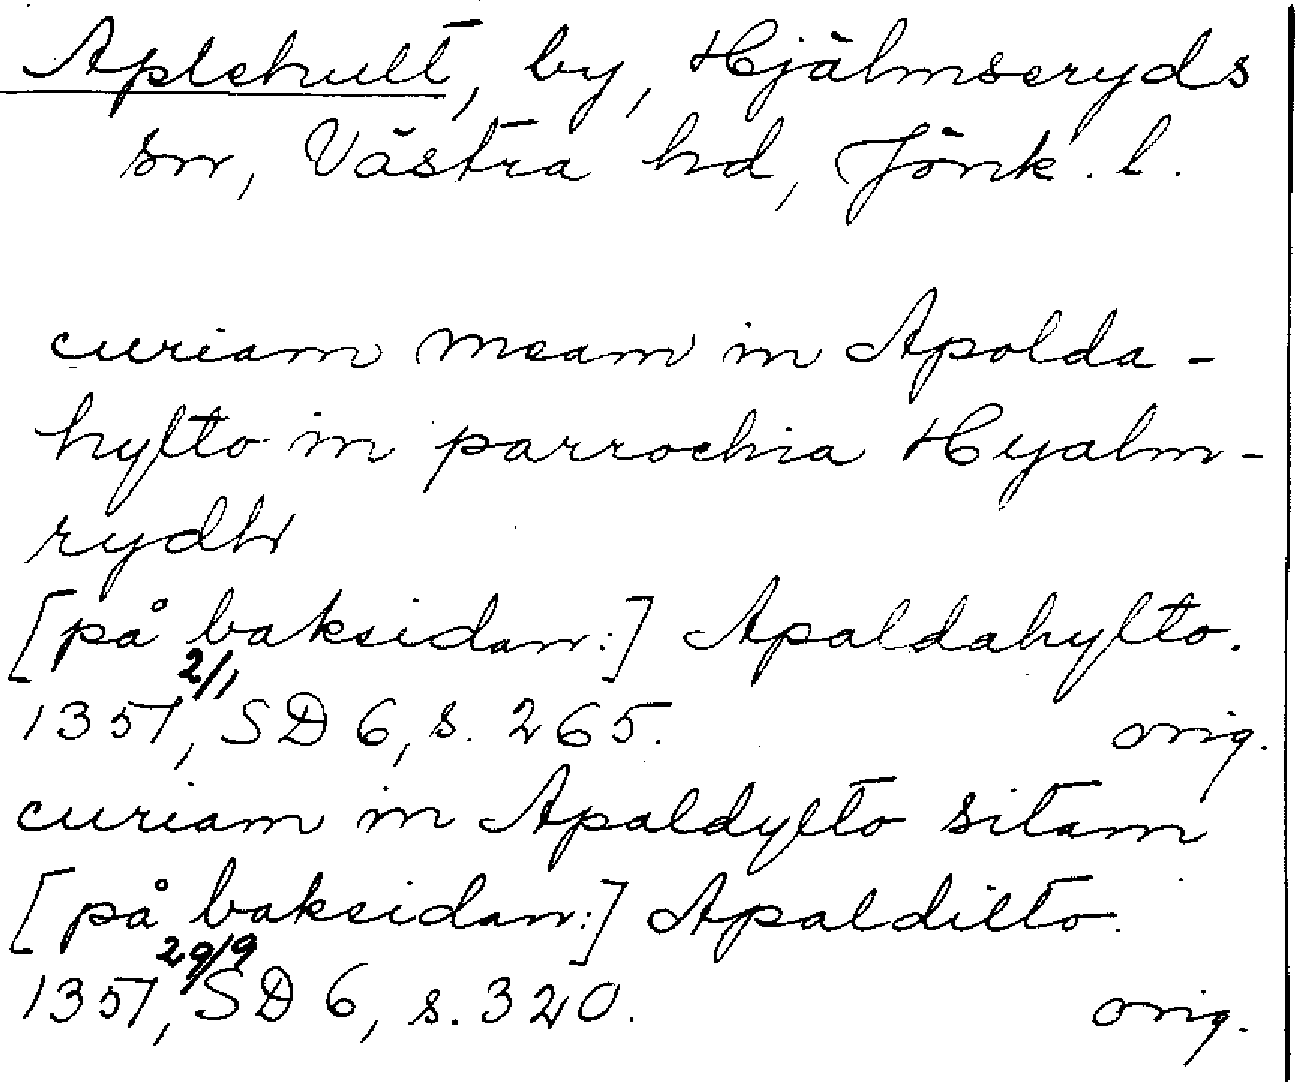 Aplehult, by, Hjälmseryds
sn, Västra hd, Jönk. l.
curiam meam in Apolda-
hylto in parrochia Hyalm-
rydh
[på baksidan:] Apaldahylto.
1351 2/1, SD 6, s. 265. orig.
curiam in Apaldylto sitam
[på baksidan:] Apaldilto.
1351 29/9, SD 6, s. 320. orig.